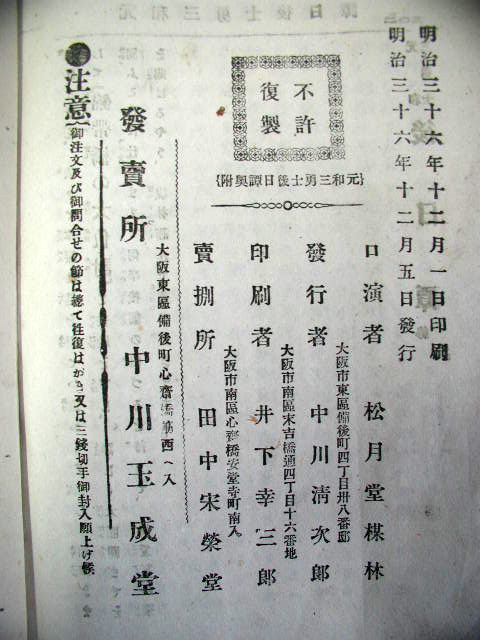 明治三十六年十二月一日印刷
明治三十六年十二月五日發行
不許
復製
{元和三勇士後日譚奥附}
口演者 松月堂楳林
大阪市東區備後町四丁目卅八番邸
發行者 中川清次郎
大阪市南區末吉橋通四丁目十六番地
印刷者 井下幸三郎
大阪市南區心齋橋安堂寺町南入
賣捌所 田中宋榮堂
大阪東區備後町心齋橋筋西へ入
發賣所 中川玉成堂
注意 御注文及び御問合せの節は總て往復はがき又は三錢切手御封入願上げ候